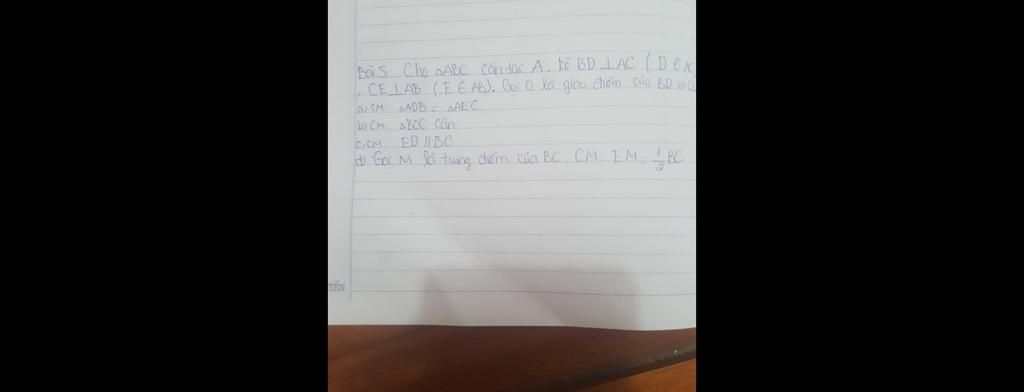 Bài 5. Cho △ABC cân tại A. kẻ BD ⊥ AC ( D ∈ A
, CE ⊥ AB ( E ∈ AB). Gọi O là giao điểm của BD và CE
a, CM △ADB = △AEC
b) CM. △BOC Cân
c, CM ED // BC
d) Gọi M là trung điểm của BC. CM: EM = 1/2 BC
TIẾN